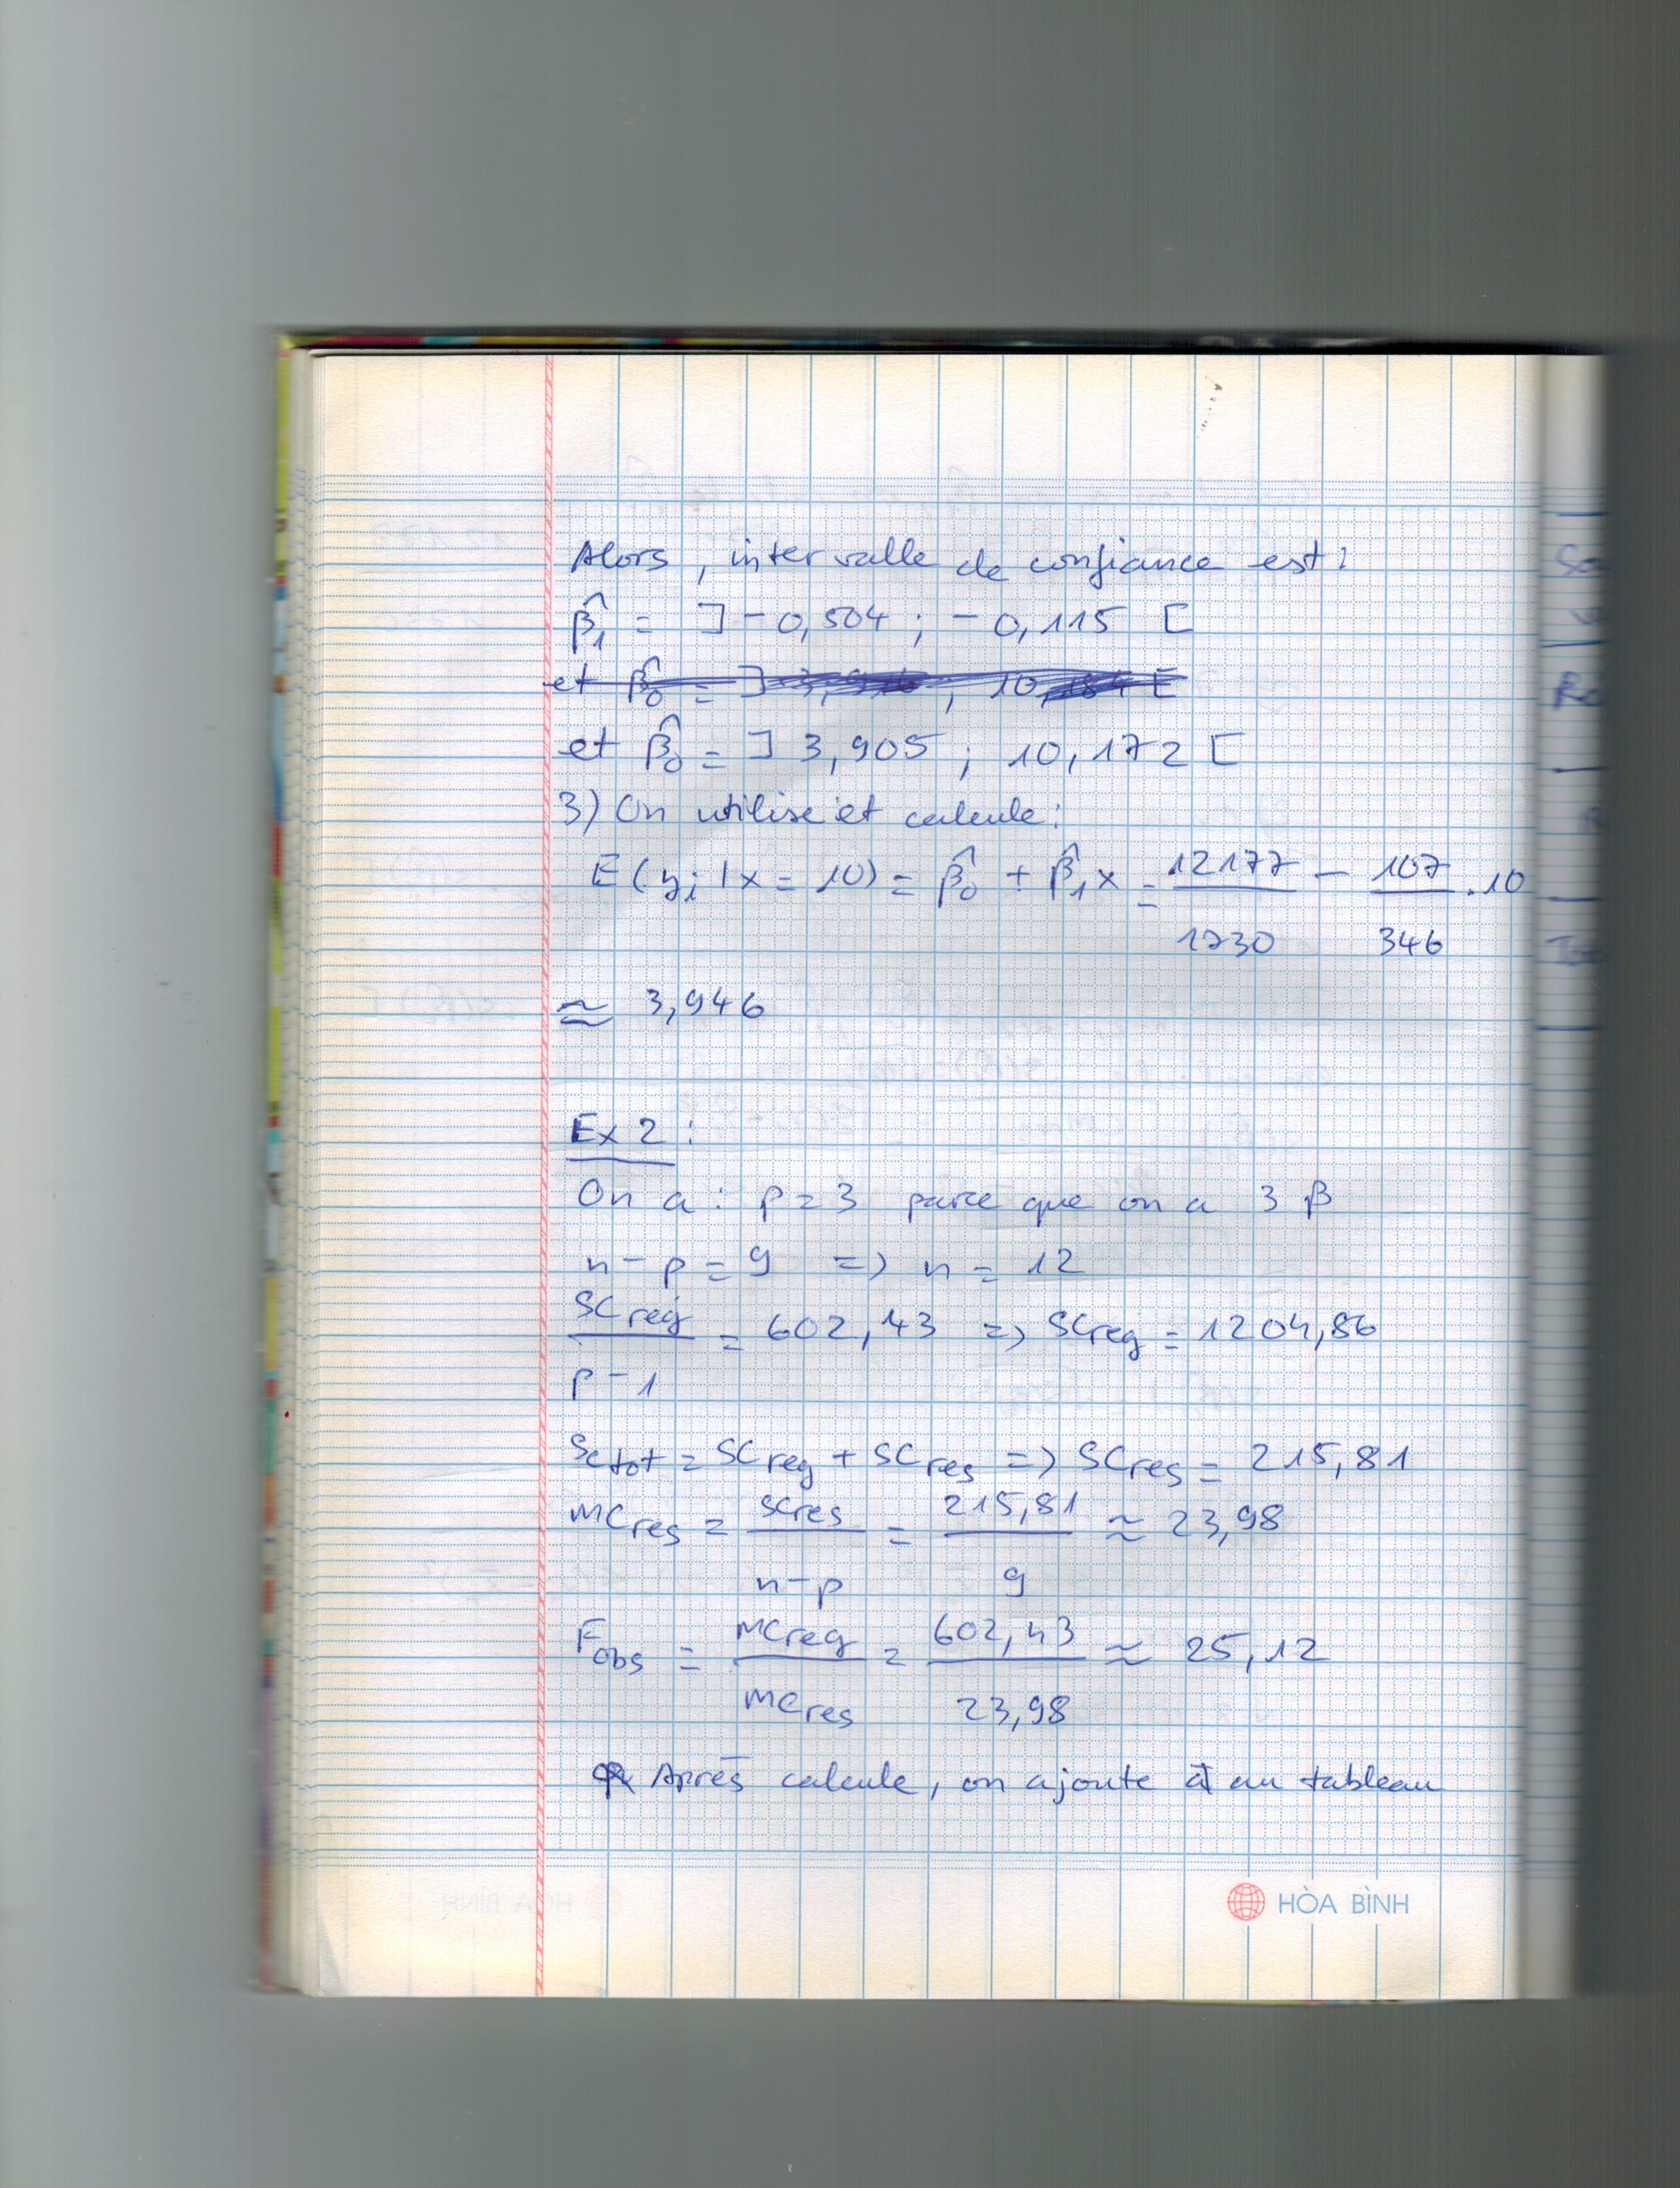 Alors, intervalle de confiance est :
β̂₁ = ]-0,504 ; -0,115 [
et β̂₀ = ] 3,905 ; 10,172 [
3) On utilise et calcule :
E(yᵢ | x = 10) = β̂₀ + β̂₁x = 12177/1730 - 107/346 .10
≈ 3,946
Ex 2 :
On a : p = 3 parce que on a 3 β
n - p = 9 => n = 12
SCreg/(p - 1) = 602,43 => SCreg = 1204,86
SCtot = SCreg + SCres => SCres = 215,81
MCres = SCres/(n-p) = 215,81/9 ≈ 23,98
Fobs = MCreg/MCres = 602,43/23,98 ≈ 25,12
Après calcule, on ajoute au tableau
HÒA BÌNH